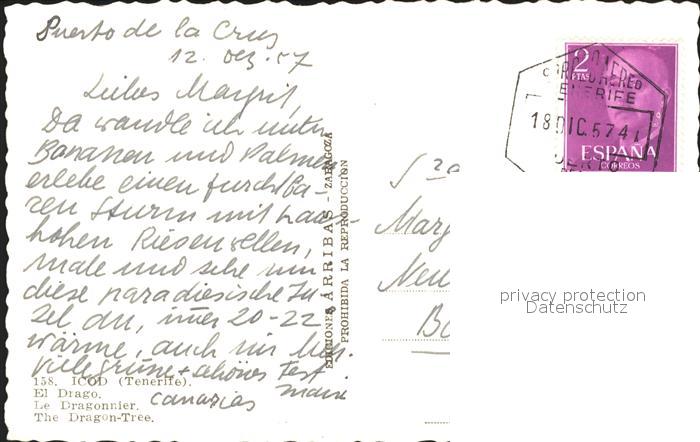 Puerto de la Cruz
12. Dez. 57
Liebes Margrit,
Da wandle ich unter
Bananen und Palmen
erlebe einen furchtba-
ren Sturm mit haus-
hohen Riesenwellen,
male und sehe mir
diese paradiesische In-
sel an, immer 20-22
wärme, auch im
Viele grüne + schönes Fest
canarias
158. ICOD (Tenerife).
El Drago.
Le Dragonnier.
The Dragon-Tree.
EDICIONES ARRIBAS - ZARAGOZA
PROHIBIDA LA REPRODUCCION
2
PTAS
TENERIFE
18 DIC. 57
ESPAÑA
CORREOS
privacy protection
Datenschutz